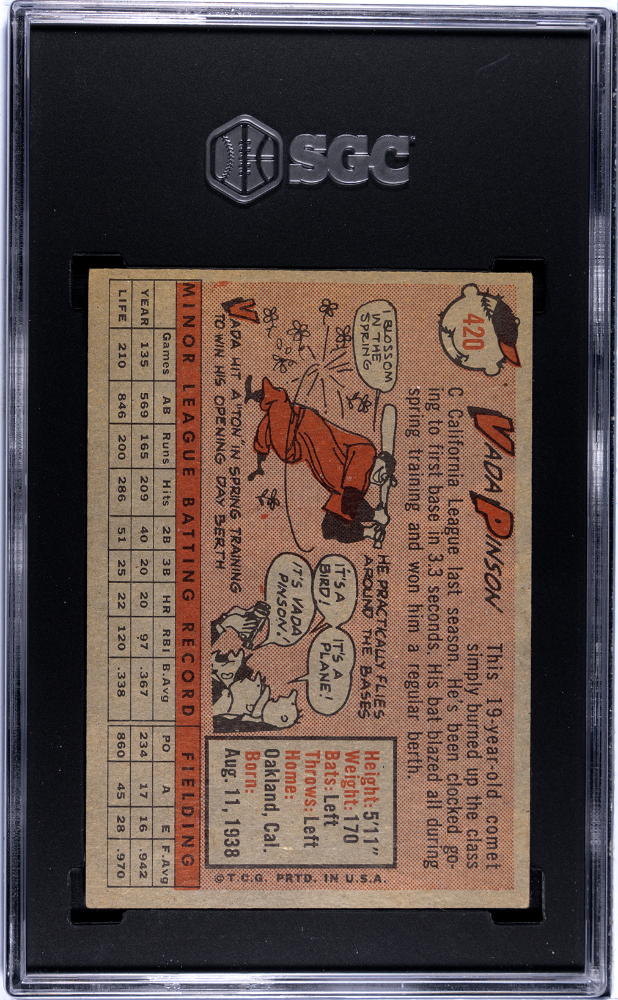 SGC
420
VADA PINSON
This 19-year-old comet
simply burned up the class
C California League last season. He's been clocked go-
ing to first base in 3.3 seconds. His bat blazed all during
spring training and won him a regular berth.
I BLOSSOM
IN THE
SPRING
VADA HIT A "TON" IN SPRING TRAINING
TO WIN HIS OPENING DAY BERTH
HE PRACTICALLY FLIES
AROUND THE BASES
IT'S A
BIRD!
IT'S A
PLANE!
IT'S VADA
PINSON!
Height: 5'11"
Weight: 170
Bats: Left
Throws: Left
Home:
Oakland, Cal.
Born:
Aug. 11, 1938
©T.C.G. PRTD. IN U.S.A.
MINOR LEAGUE BATTING RECORD FIELDING
Games AB Runs Hits 2B 3B HR RBI B.Avg PO A E F.Avg
YEAR 135 569 165 209 40 20 20 97 .367 234 17 16 .942
LIFE 210 846 200 286 51 25 22 120 .338 860 45 28 .970